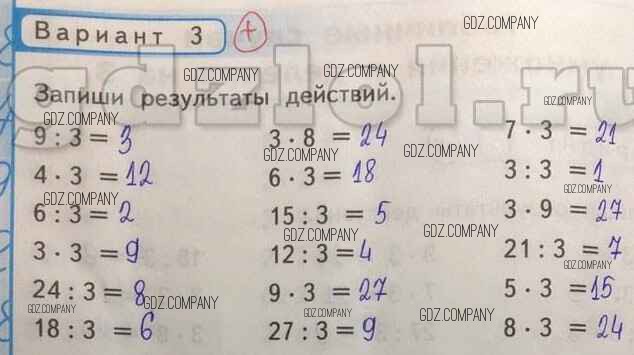 Вариант 3 +
GDZ.COMPANY
GDZ.COMPANY GDZ.COMPANY
gdzlol.ru
Запиши результаты действий.
GDZ.COMPANY GDZ.COMPANY
9 : 3 = 3 3 · 8 = 24 7 · 3 = 21
GDZ.COMPANY GDZ.COMPANY
4 · 3 = 12 6 · 3 = 18 3 : 3 = 1
GDZ.COMPANY GDZ.COMPANY
6 : 3 = 2 15 : 3 = 5 3 · 9 = 27
GDZ.COMPANY GDZ.COMPANY
3 · 3 = 9 12 : 3 = 4 21 : 3 = 7
GDZ.COMPANY
24 : 3 = 8 9 · 3 = 27 5 · 3 = 15
GDZ.COMPANY GDZ.COMPANY GDZ.COMPANY
18 : 3 = 6 27 : 3 = 9 8 · 3 = 24